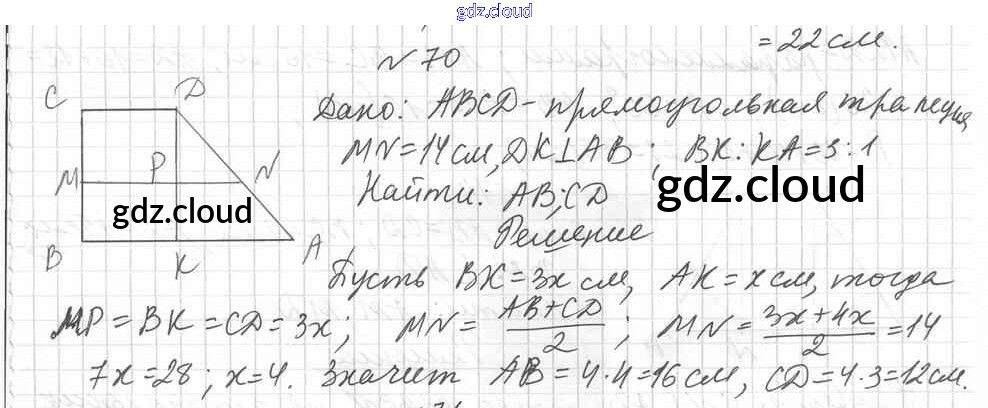 gdz.cloud
= 22 см.
№ 70
C D
Дано: ABCD - прямоугольная трапеция,
MN = 14 см, DK ⊥ AB ; BK : KA = 3 : 1
M P N
Найти: AB; CD
gdz.cloud gdz.cloud
Решение
B K A
Пусть BK = 3x см, AK = x см, тогда
MP = BK = CD = 3x ; MN = (AB + CD)/2 ; MN = (3x + 4x)/2 = 14
7x = 28 ; x = 4. Значит AB = 4·4 = 16 см, CD = 4·3 = 12 см.